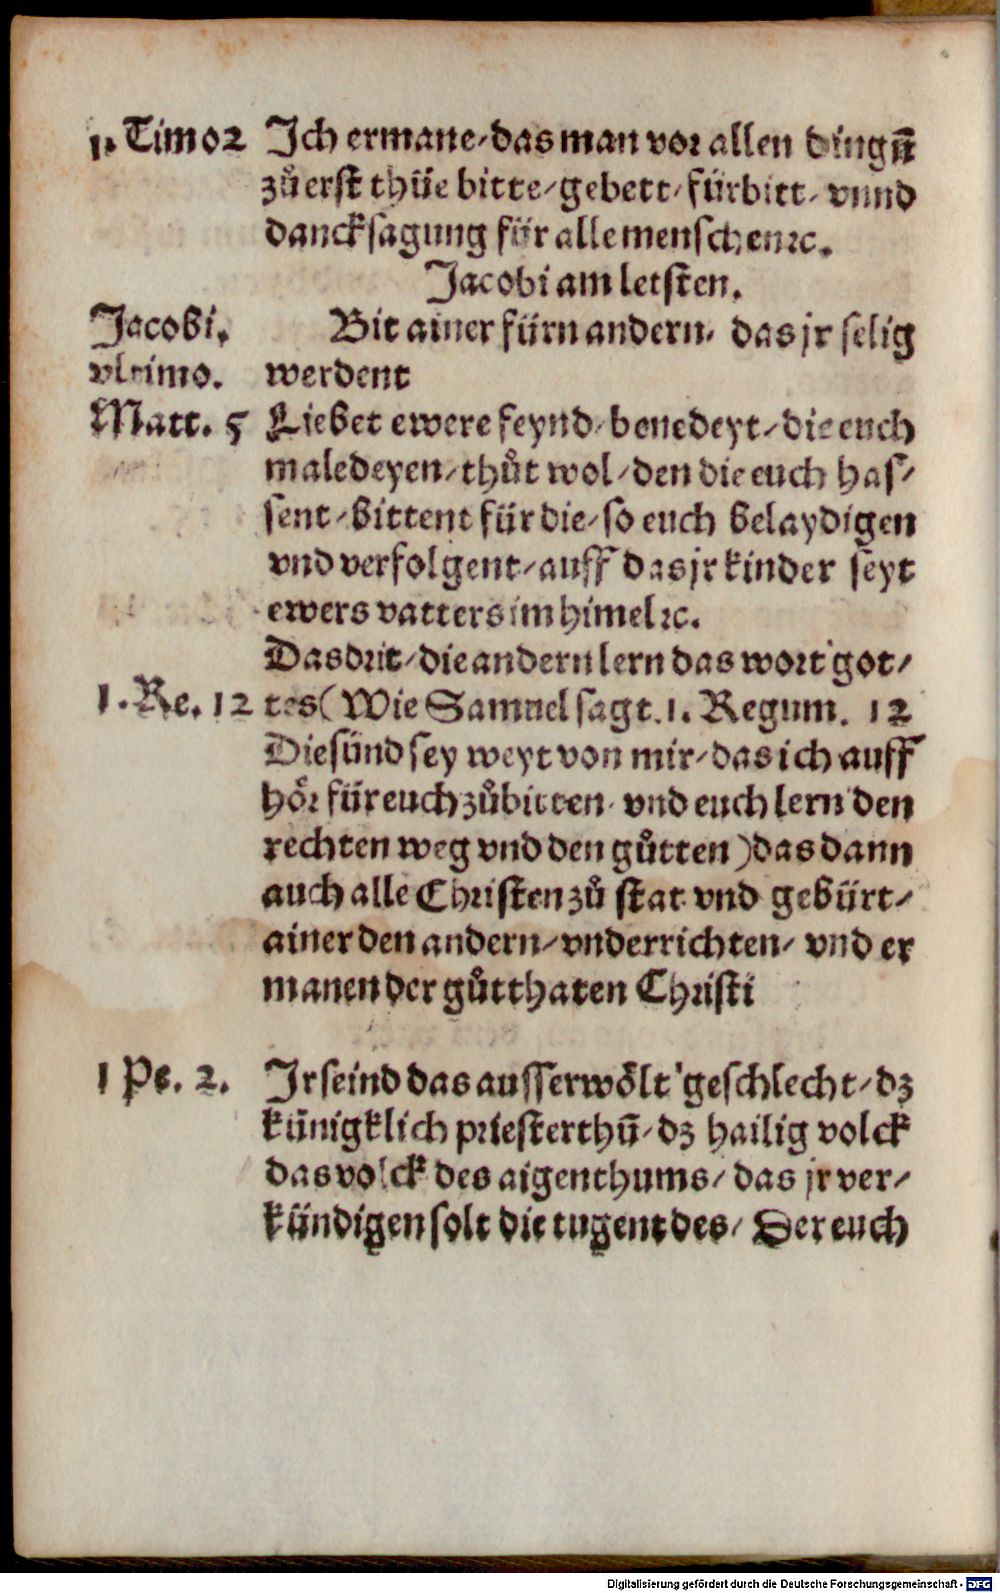 1. Timo 2 Ich ermane/ das man vor allen dingē
zů erst thüe bitte/ gebett/ fürbitt/ vnnd
dancksagung für alle menschen ꝛc.
Jacobi am letsten.
Jacobi. Bit ainer fürn andern/ das jr selig
vltimo. werdent
Matt. 5 Liebet ewere feynd/ benedeyt/ die euch
maledeyen/ thůt wol/ den die euch has/
sent/ bittent für die/ so euch belaydigen
vnd verfolgent/ auff das jr kinder seyt
ewers vatters im himel ꝛc.
Das drit/ die andern lern das wort got/
1. Re. 12 tes (Wie Samuel sagt. 1. Regum. 12
Die sünd sey weyt von mir/ das ich auff
hör für euch zůbitten/ vnd euch lern den
rechten weg vnd den gůtten) das dann
auch alle Christen zů stat vnd gebürt/
ainer den andern/ vnderrichten/ vnd er
manen der gůtthaten Christi
1 Pe. 2. Ir seind das ausserwölt geschlecht/ dz
künigklich priesterthū/ dz hailig volck
das volck des aigenthums/ das jr ver/
kündigen solt die tugent des/ Der euch
Digitalisierung gefördert durch die Deutsche Forschungsgemeinschaft - DFG